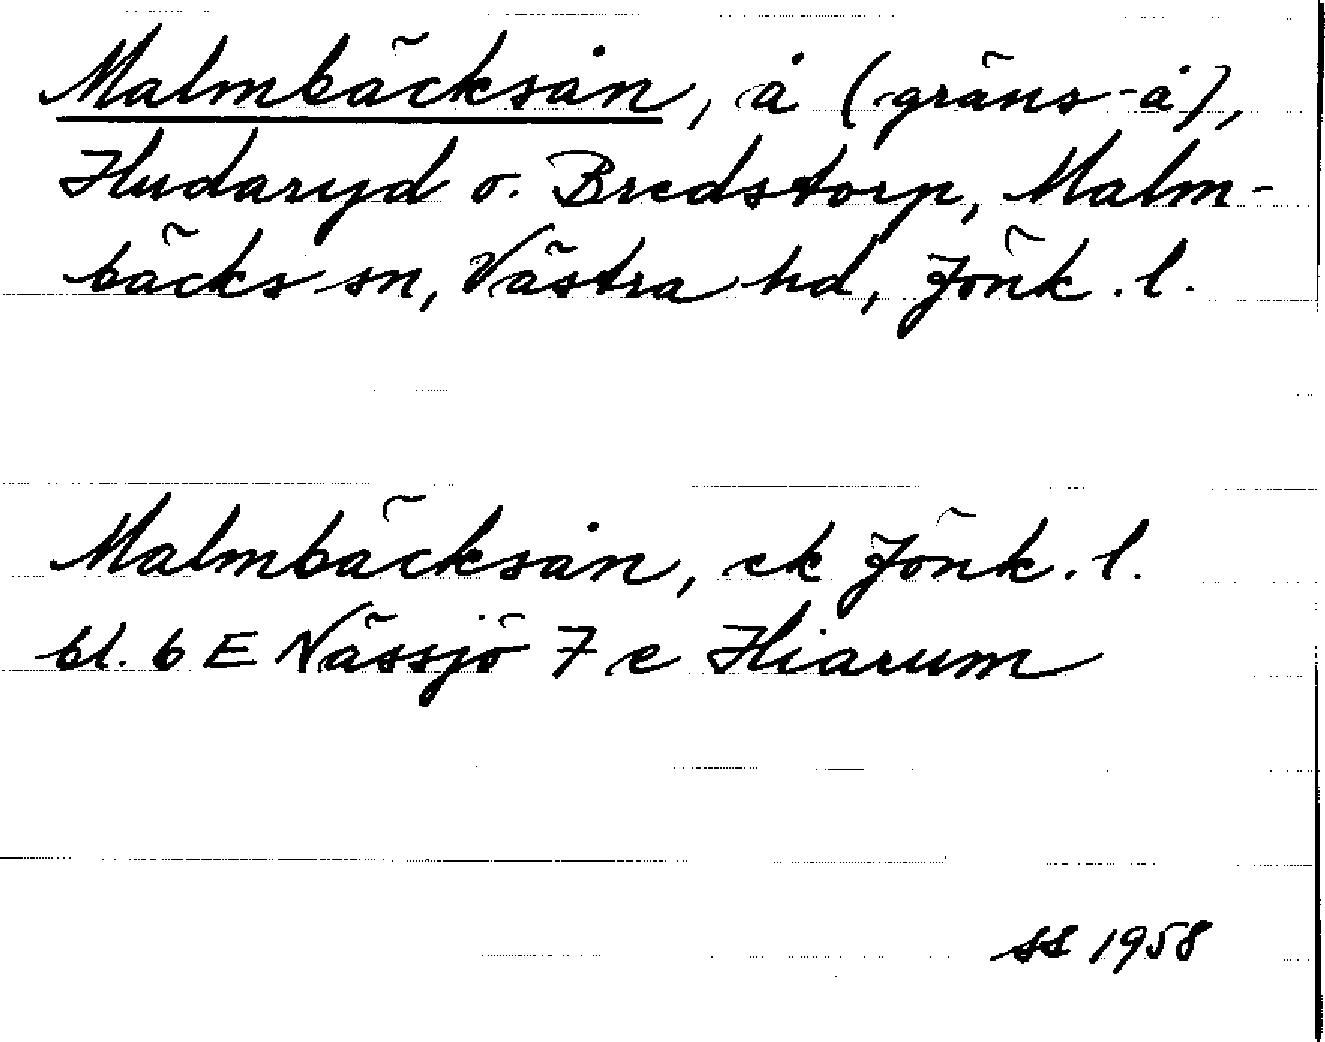 Malmbäcksån, å (gräns-å),
Hudaryd o. Bredstorp, Malm-
bäcks sn, Västra hd, Jönk. l.
Malmbäcksån, ek Jönk. l.
bl. 6 E Nässjö 7 e Hiarum
SS 1958